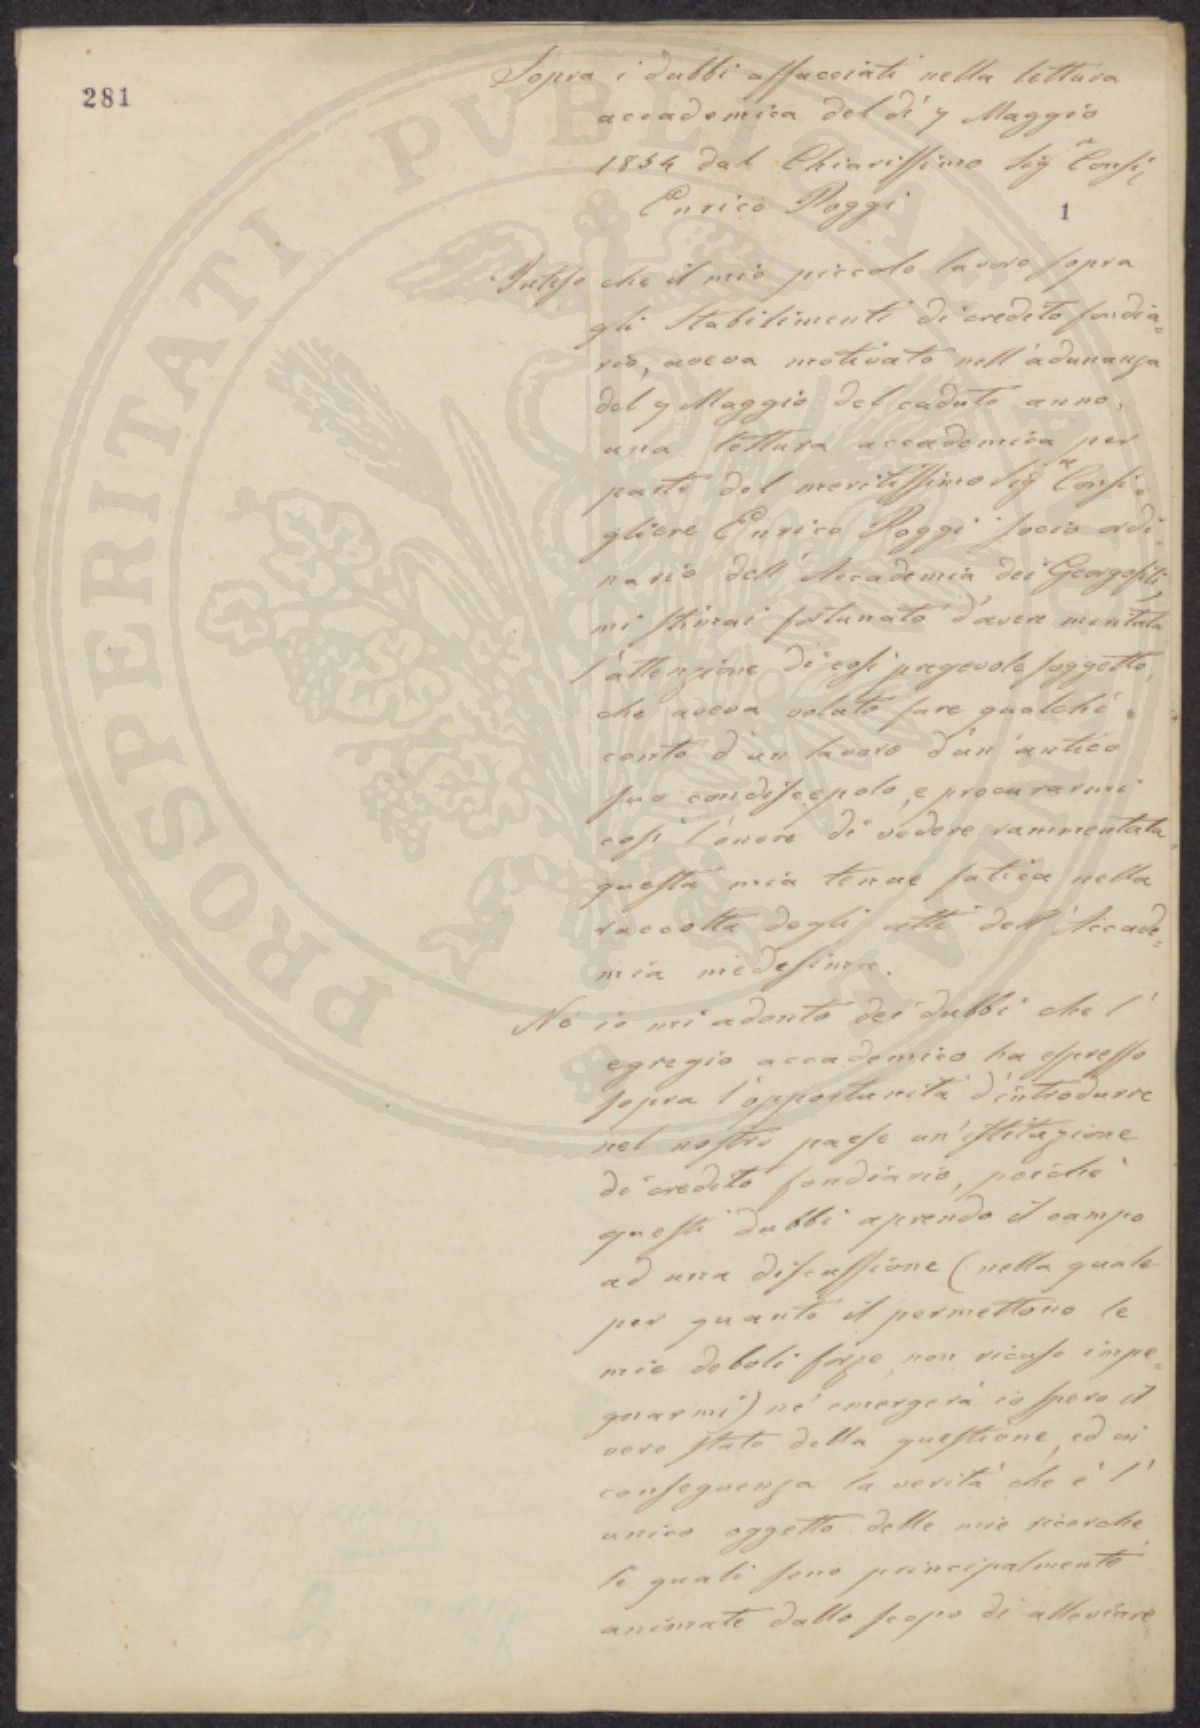 281
Sopra i dubbi affacciati nella lettura
accademica del dì 7 Maggio
1854 dal Chiarissimo Sig.r Consi
Enrico Poggi
1
Inteso che il mio piccolo lavoro sopra
gli Stabilimenti di credito fondia=
rio, aveva motivato nell'adunanza
del 7 Maggio del caduto anno,
una lettura accademica per
parte del meritissimo Sig.r Consi=
gliere Enrico Poggi socio ordi=
nario dell'Accademia dei Georgofili,
mi stimai fortunato d'avere meritata
l'attenzione di così pregevole soggetto,
che aveva voluto fare qualche
conto d'un lavoro d'un'antico
suo condiscepolo, e procurarmi
così l'onore di vedere rammentata
questa mia tenue fatica nella
raccolta degli atti dell'Accade=
mia medesima.
Nè io mi adontò dei dubbi che l'
egregio accademico ha espresso
sopra l'opportunità d'introdurre
nel nostro paese un'istituzione
di credito fondiario, poichè
questi dubbi aprendo il campo
ad una discussione (nella quale
per quanto il permettono le
mie deboli forze, non ricuso impe=
gnarmi) ne emergerà io spero il
vero stato della questione, ed in
conseguenza la verità che è l'
unico oggetto delle mie ricerche
le quali sono principalmente
animate dallo scopo di alleviare
PROSPERITATI PVBLICAE AVGENDAE